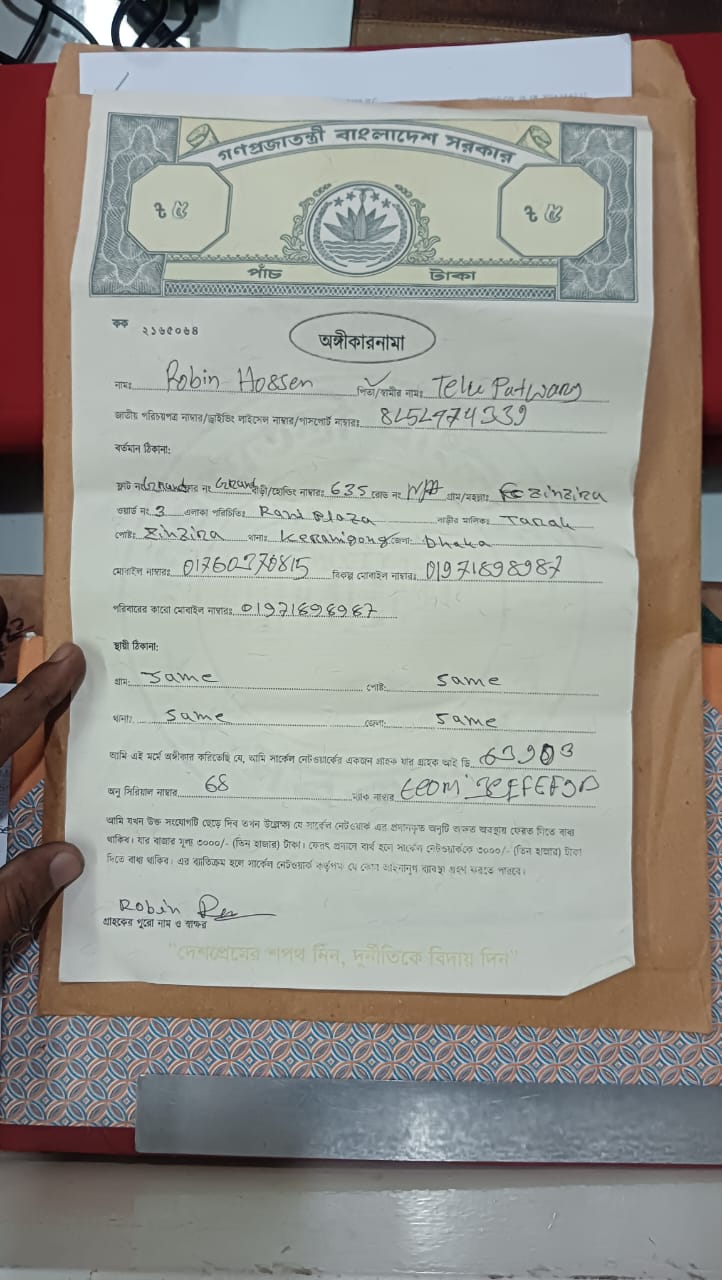 গণপ্রজাতন্ত্রী বাংলাদেশ সরকার
৳ ৫ ৳ ৫
পাঁচ টাকা
কক ২১৬৫০৬৪
অঙ্গীকারনামা
নামঃ Robin Hossen পিতা/স্বামীর নামঃ Telu Patwary
জাতীয় পরিচয়পত্র নাম্বার/ড্রাইভিং লাইসেন্স নাম্বার/পাসপোর্ট নাম্বারঃ
বর্তমান ঠিকানা:
ফ্লাট নং Ground ফ্লোর নং Ground বাড়ী/হোল্ডিং নাম্বারঃ 635 রোড নং N/A গ্রাম/মহল্লাঃ Zinzira
ওয়ার্ড নং 3 এলাকা পরিচিতিঃ Plaza বাড়ীর মালিকঃ
পোষ্টঃ Zinzira থানাঃ জেলাঃ Dhaka
মোবাইল নাম্বারঃ বিকল্প মোবাইল নাম্বারঃ 01971898987
পরিবারের কারো মোবাইল নাম্বারঃ
স্থায়ী ঠিকানা:
গ্রাম: Same পোষ্ট: Same
থানাঃ Same জেলা: Same
আমি এই মর্মে অঙ্গীকার করিতেছি যে, আমি সার্কেল নেটওয়ার্কের একজন গ্রাহক যার গ্রাহক আই ডি. 63903
অনু সিরিয়াল নাম্বার 68 ম্যাক নাম্বার
আমি যখন উক্ত সংযোগটি ছেড়ে দিব তখন উল্লেখ্য যে সার্কেল নেটওয়ার্ক এর প্রদানকৃত অনুটি অক্ষত অবস্থায় ফেরত দিতে বাধ্য
থাকিব। যার বাজার মূল্য ৩০০০/- (তিন হাজার) টাকা। ফেরৎ প্রদানে ব্যর্থ হলে সার্কেল নেটওয়ার্ককে ৩০০০/- (তিন হাজার) টাকা
দিতে বাধ্য থাকিব। এর ব্যতিক্রম হলে সার্কেল নেটওয়ার্ক কর্তৃপক্ষ যে কোন আইনানুগ ব্যবস্থা গ্রহণ করতে পারবে।
Robin
গ্রাহকের পুরো নাম ও স্বাক্ষর
"দেশপ্রেমের শপথ নিন, দুর্নীতিকে বিদায় দিন"